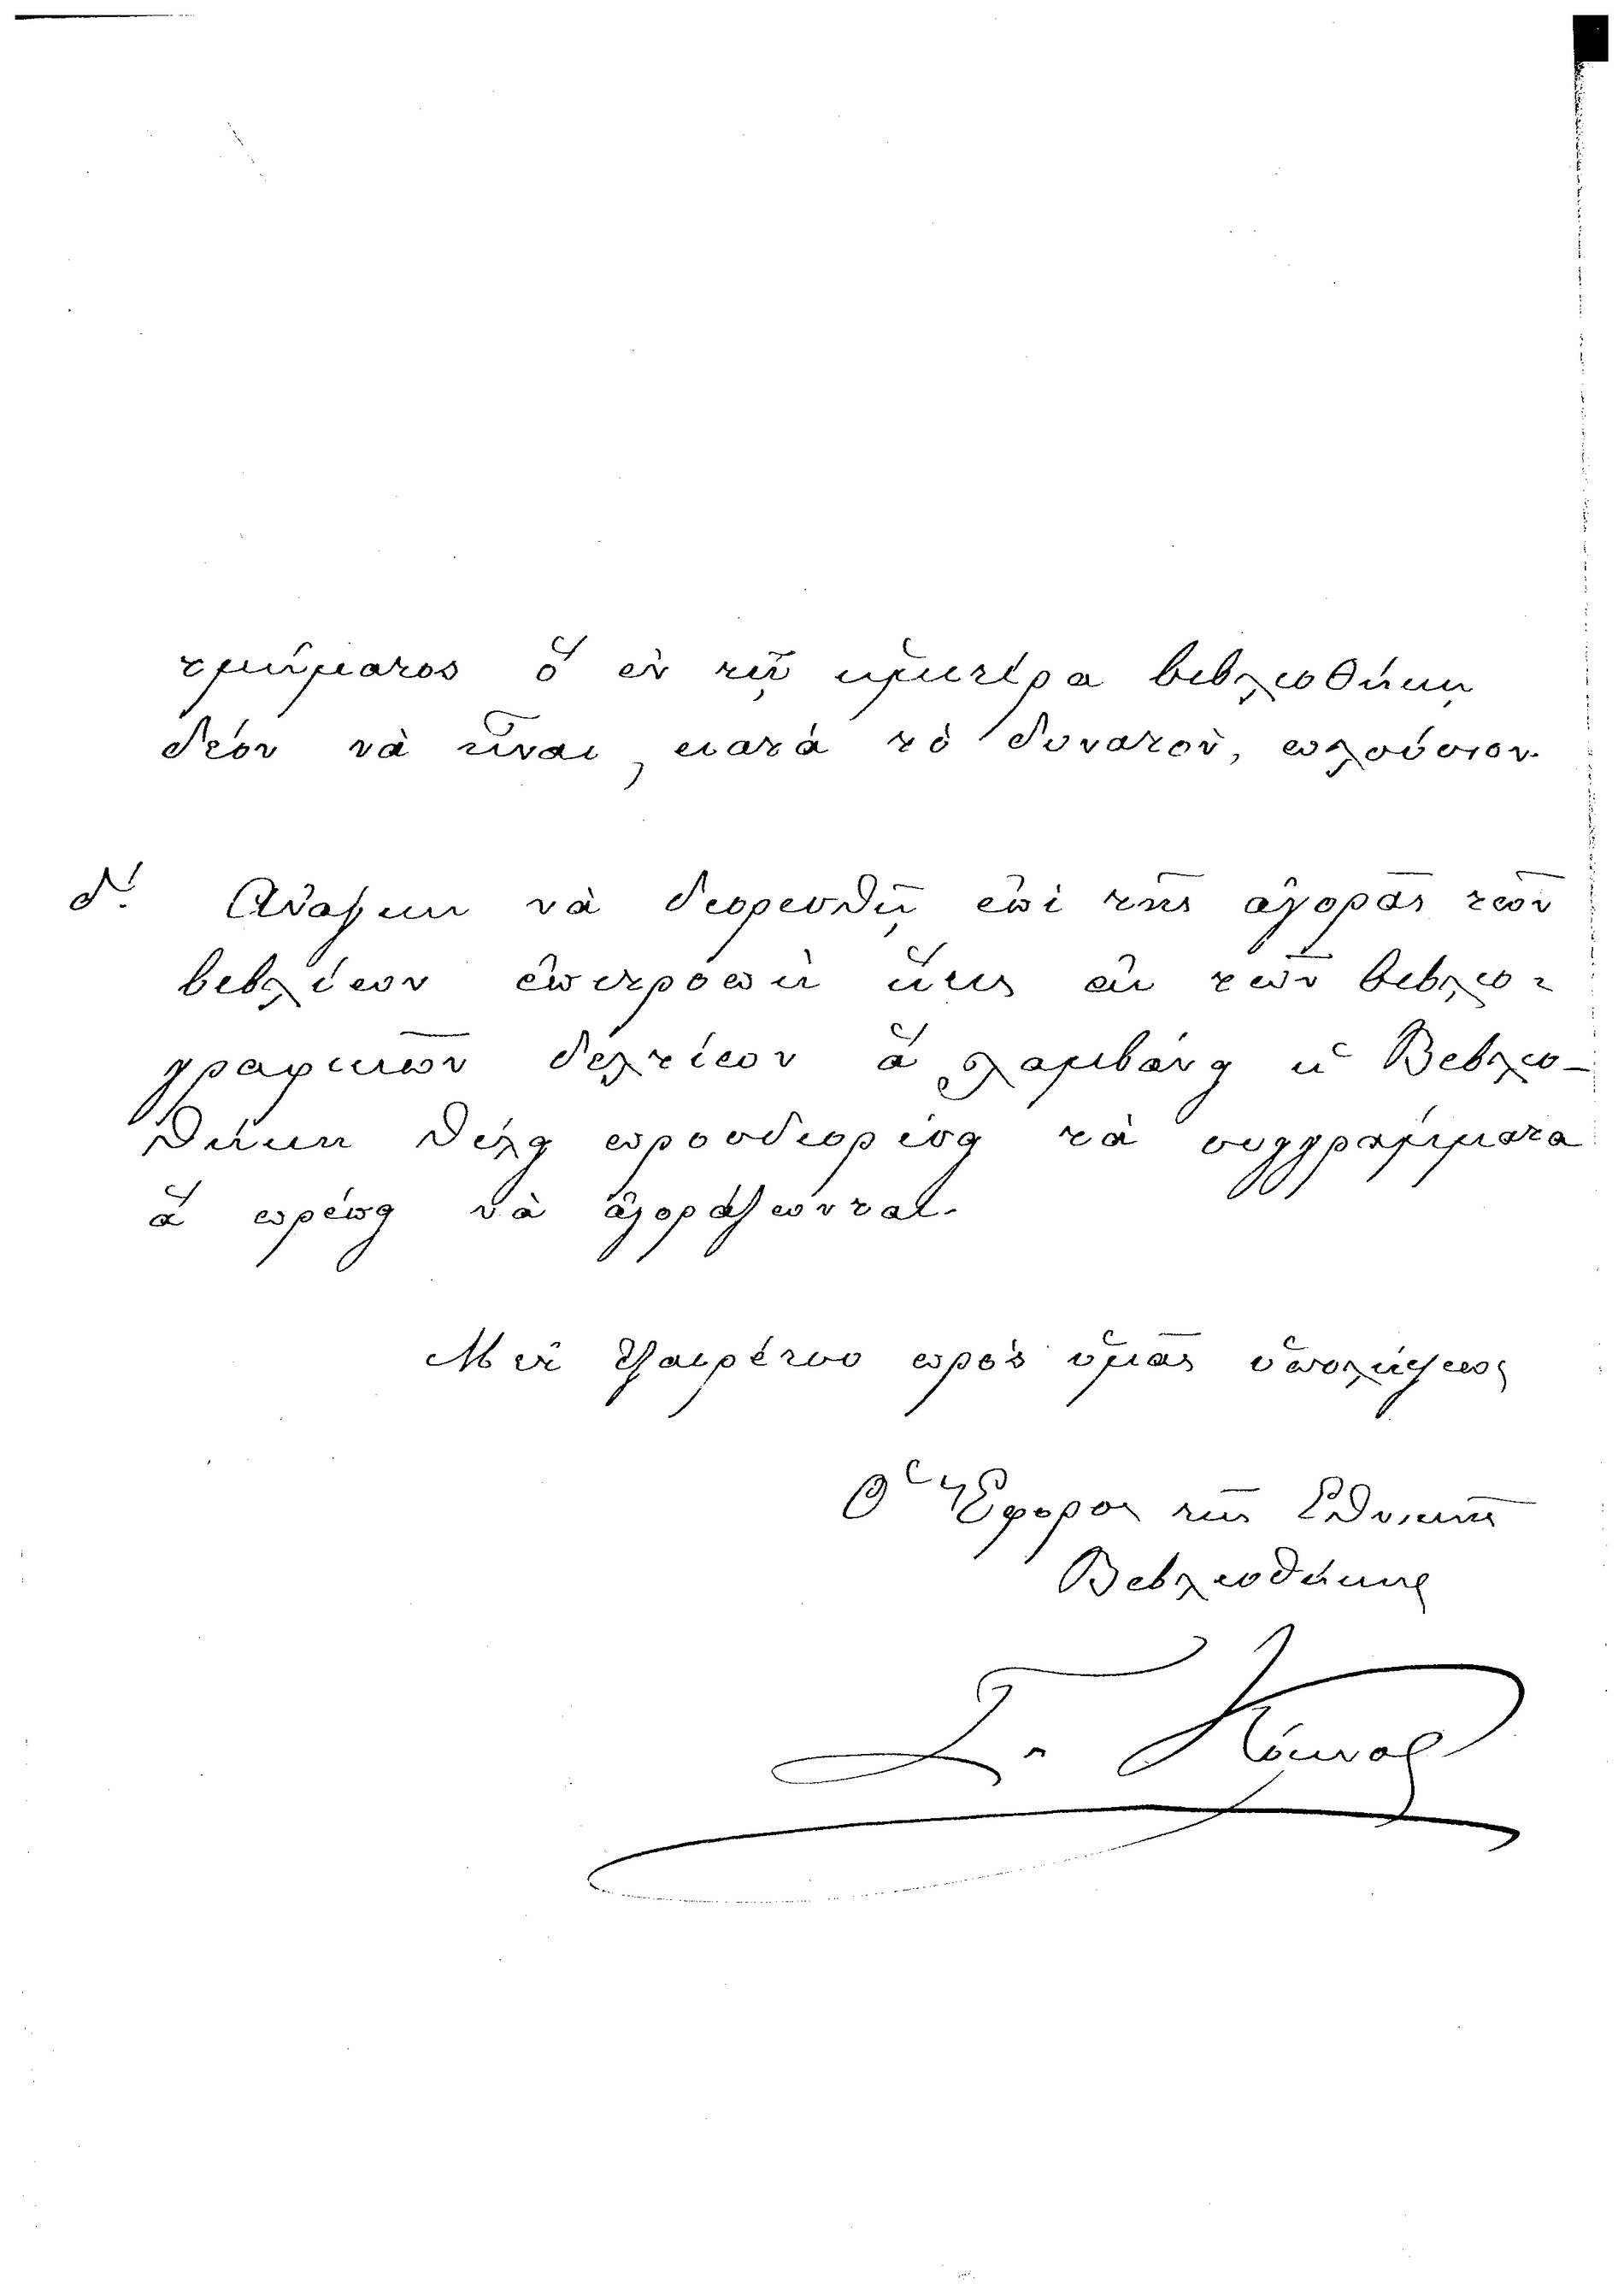 τμήματος ὅ ἐν τῇ ἡμετέρᾳ βιβλιοθήκῃ
δέον νὰ εἶναι, κατὰ τὸ δυνατόν, πλούσιον.
δ! Ἀνάγκη νὰ διορισθῇ ἐπὶ τῆς ἀγορᾶς τῶν
βιβλίων ἐπιτροπὴ ἥτις ἐκ τῶν βιβλιο-
γραφικῶν δελτίων ἃ λαμβάνῃ ἡ Βιβλιο-
θήκη θέλῃ προσδιορίσῃ τὰ συγγράμματα
ἃ πρέπῃ νὰ ἀγοράζωνται.
Μετ' ἐξαιρέτου πρὸς ὑμᾶς ὑπολήψεως
Ὁ Ἔφορος τῆς Ἐθνικῆς
Βιβλιοθήκης